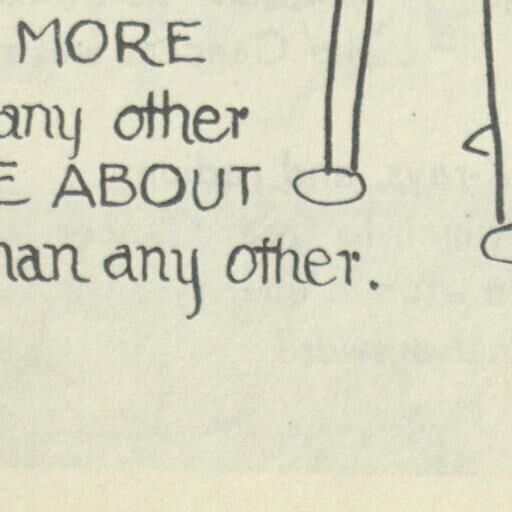 MORE
any other
E ABOUT
han any other.